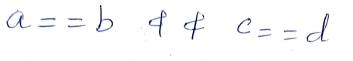 a==b && c==d